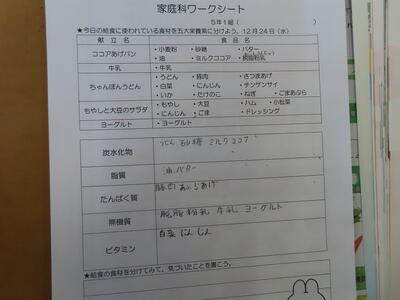 家庭科ワークシート
5年1組( )
★今日の給食に使われている食材を五大栄養素に分けよう。12月24日(水)
献立名 食品名
ココアあげパン ・小麦粉 ・砂糖 ・バター
・油 ・ミルクココア ・脱脂粉乳
牛乳 ・牛乳
ちゃんぽんうどん ・うどん ・豚肉 ・さつまあげ
・白菜 ・にんじん ・チンゲンサイ
・いか ・たけのこ ・ねぎ ・ごまあぶら
もやしと大豆のサラダ ・もやし ・大豆 ・ハム ・小松菜
・にんじん ・ごま ・ドレッシング
ヨーグルト ・ヨーグルト
炭水化物 うどん 砂糖 ミルクココア
脂質 油 バター
たんぱく質 豚肉
無機質 脱脂粉乳 牛乳 ヨーグルト
ビタミン 白菜 にんじん
★給食の食材を分けてみて、気づいたことを書こう。